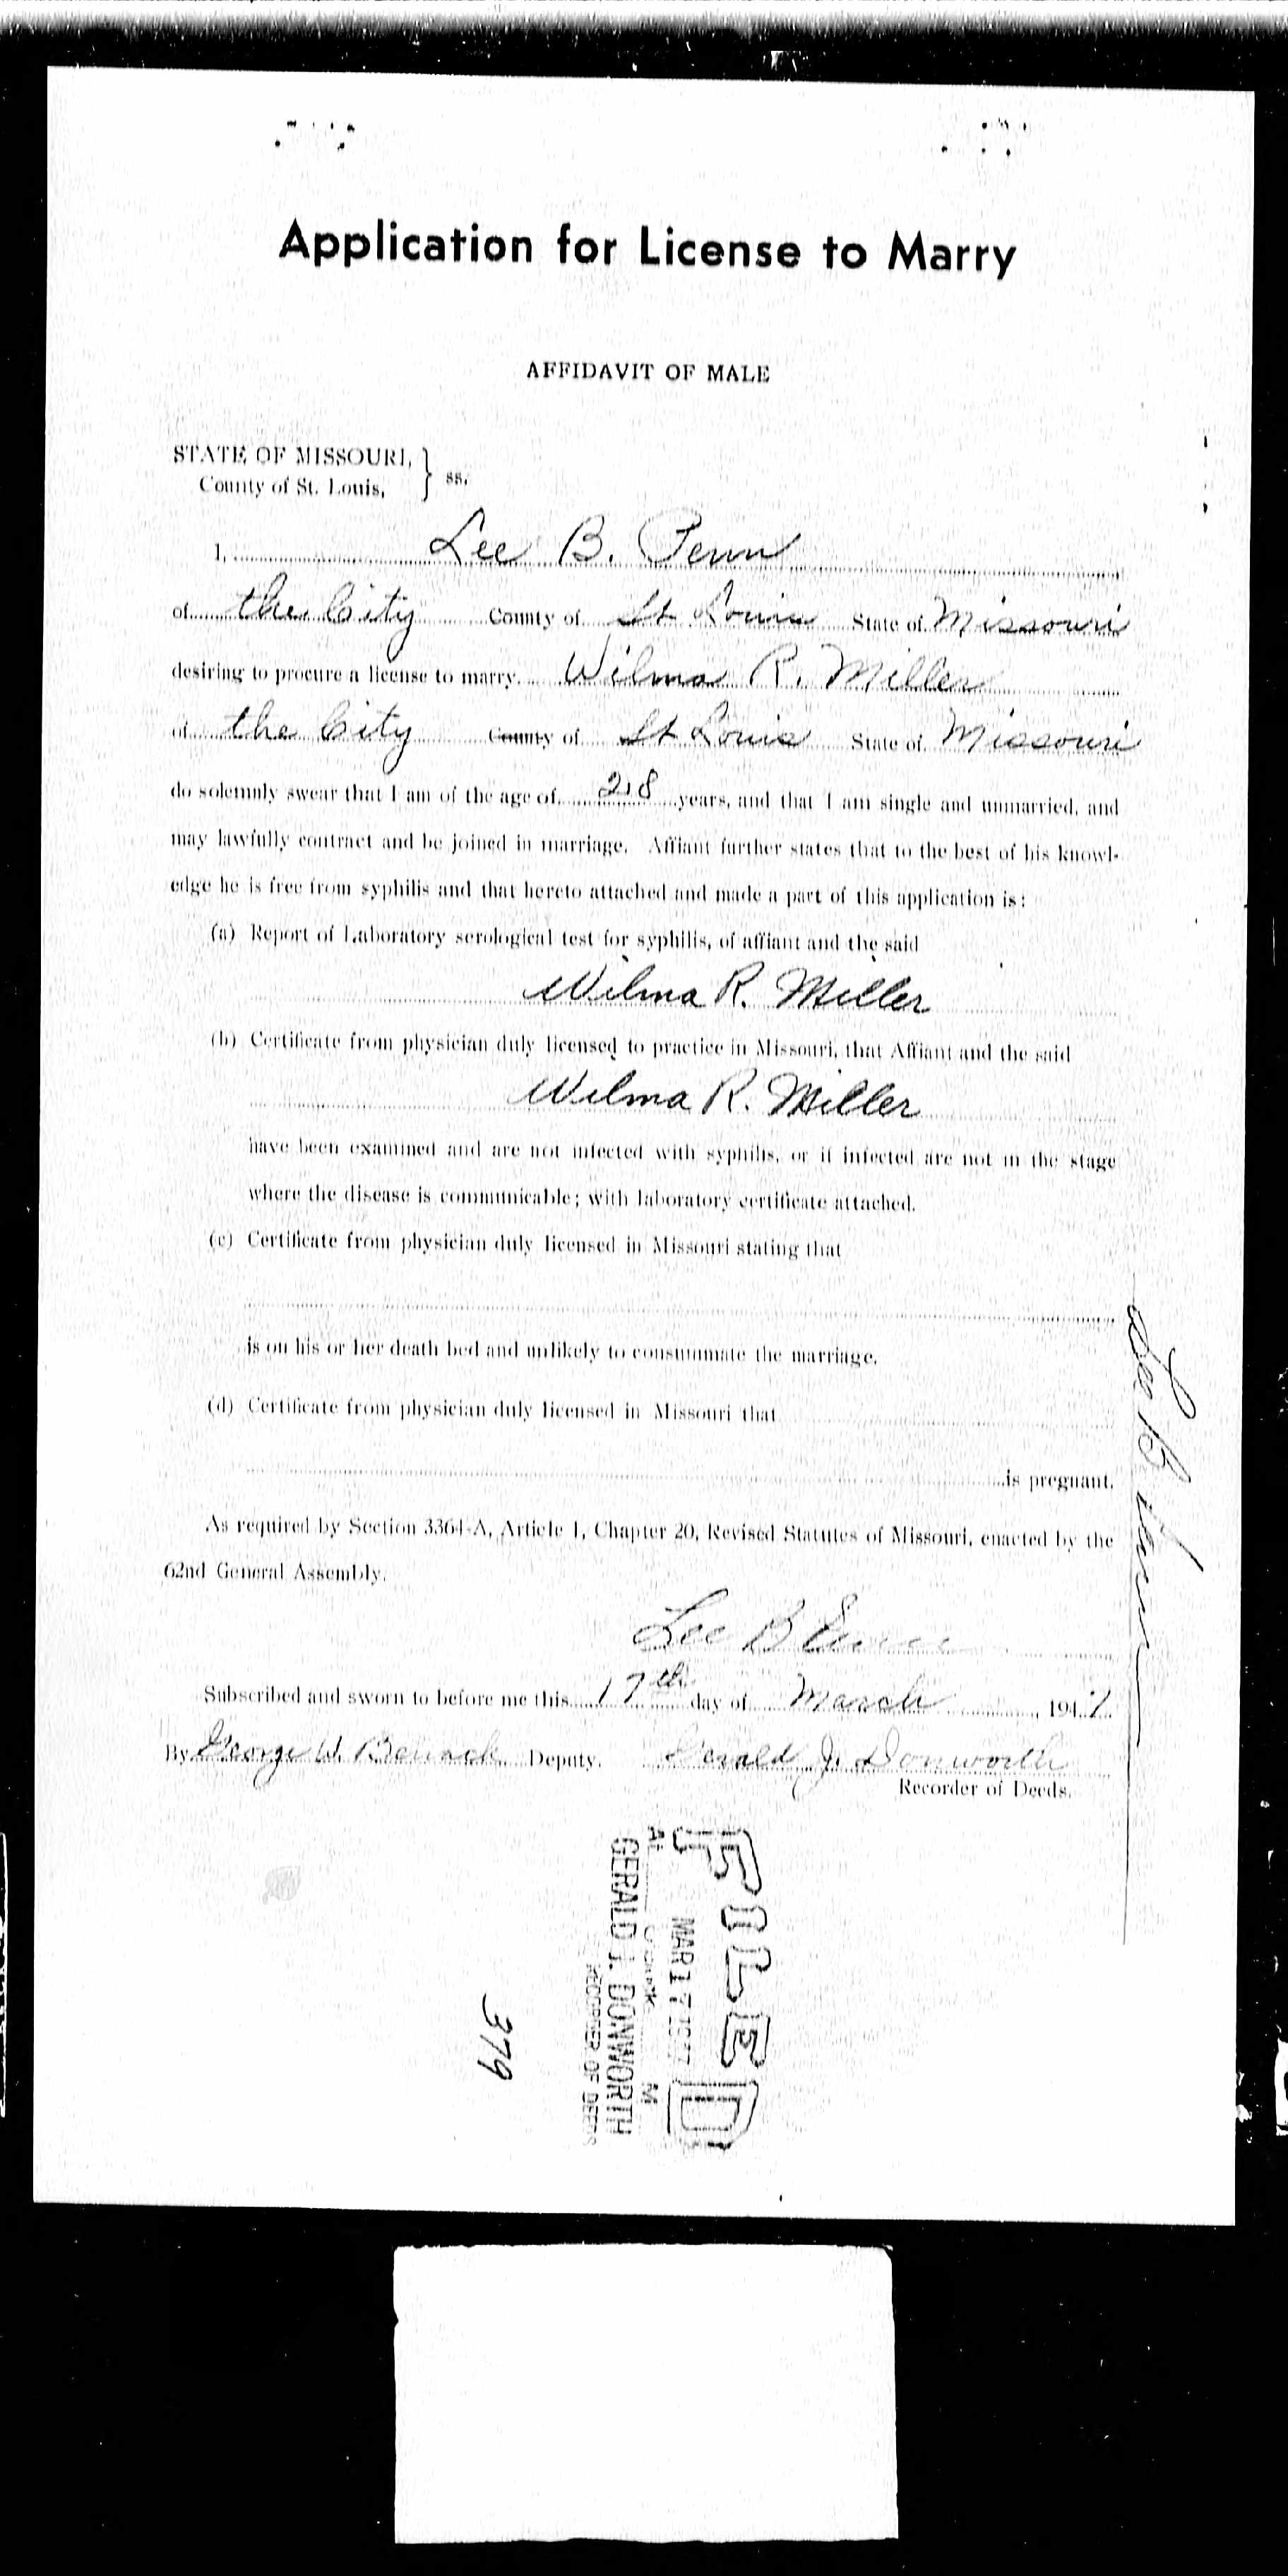 Application for License to Marry
AFFIDAVIT OF MALE
STATE OF MISSOURI,
County of St. Louis, } ss.
I, Lee B. Penn
of the City County of St Louis State of Missouri
desiring to procure a license to marry Wilma R. Miller
of the City County of St Louis State of Missouri
do solemnly swear that I am of the age of 28 years, and that I am single and unmarried, and
may lawfully contract and be joined in marriage. Affiant further states that to the best of his knowl-
edge he is free from syphilis and that hereto attached and made a part of this application is:
(a) Report of Laboratory serological test for syphilis, of affiant and the said
Wilma R. Miller
(b) Certificate from physician duly licensed to practice in Missouri, that Affiant and the said
Wilma R. Miller
have been examined and are not infected with syphilis, or if infected are not in the stage
where the disease is communicable; with laboratory certificate attached.
(c) Certificate from physician duly licensed in Missouri stating that
is on his or her death bed and unlikely to consummate the marriage.
(d) Certificate from physician duly licensed in Missouri that
is pregnant.
As required by Section 3364-A, Article 1, Chapter 20, Revised Statutes of Missouri, enacted by the
62nd General Assembly.
Lee B Penn
Subscribed and sworn to before me this 17th day of March, 1947.
By George W. Deputy. Gerald J. Donworth
Recorder of Deeds.
Lee B Penn
FILED
MAR 17 1947
At o'clock M
GERALD J. DONWORTH
RECORDER OF DEEDS
379